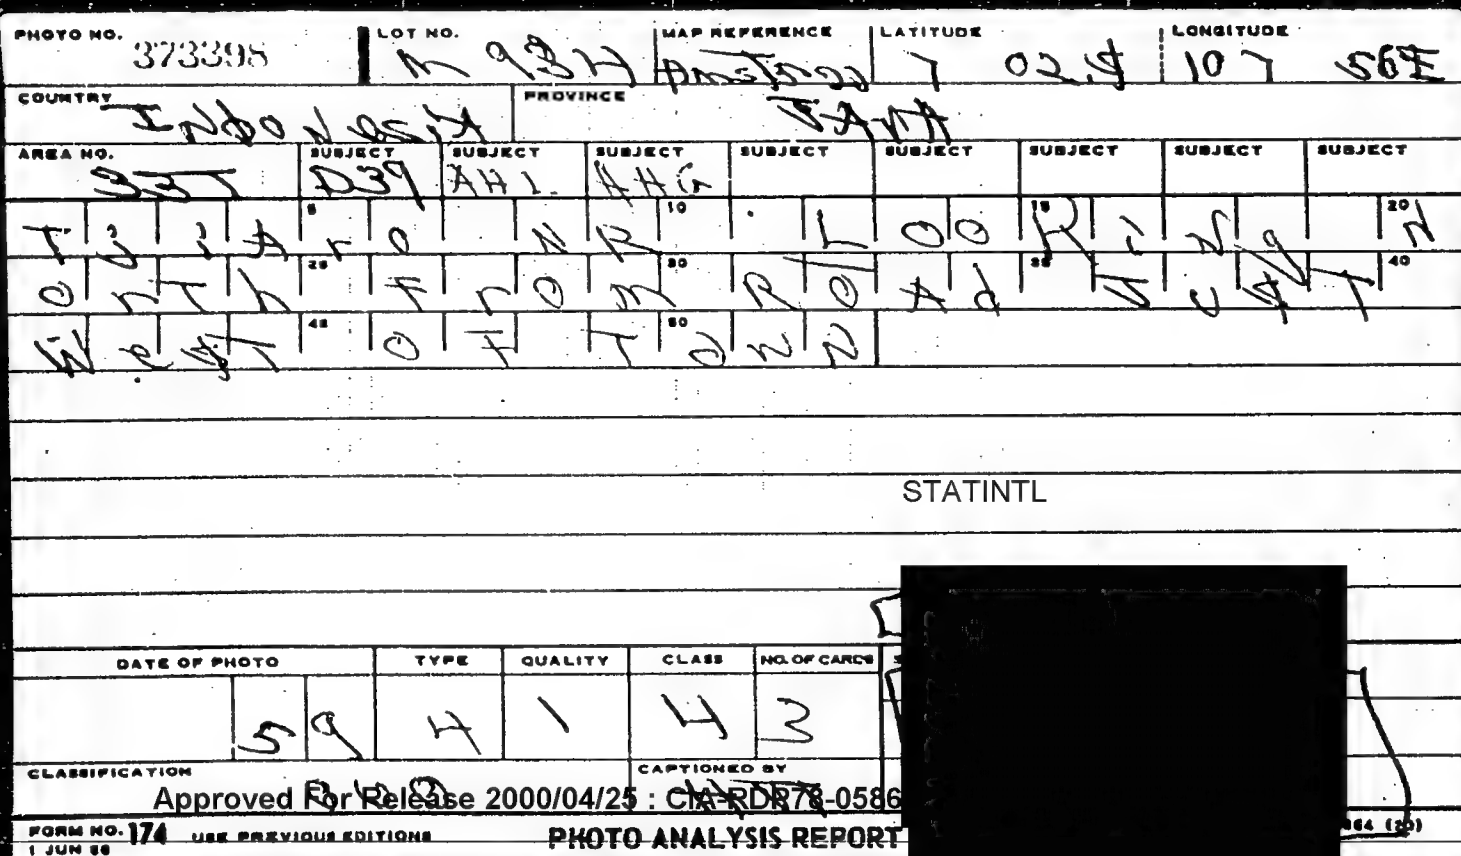 PHOTO NO. 373398 LOT NO. M 93H MAP REFERENCE LATITUDE 7 02.S LONGITUDE 107 56E
COUNTRY Indonesia PROVINCE JAVA
AREA NO. 33T SUBJECT D39 SUBJECT AHL SUBJECT AHG SUBJECT SUBJECT SUBJECT SUBJECT SUBJECT
5 10 15 20
TjiAro NR. LOOKiNg N
25 30 35 40
orTh From ROAd JusT
45 50
WesT OF Town
STATINTL
DATE OF PHOTO TYPE QUALITY CLASS NO. OF CARDS
59 4 1 4 3
CLASSIFICATION CAPTIONED BY
Approved For Release 2000/04/25 : CIA-RDP78-0586
FORM NO. 174 USE PREVIOUS EDITIONS PHOTO ANALYSIS REPORT (20)
1 JUN